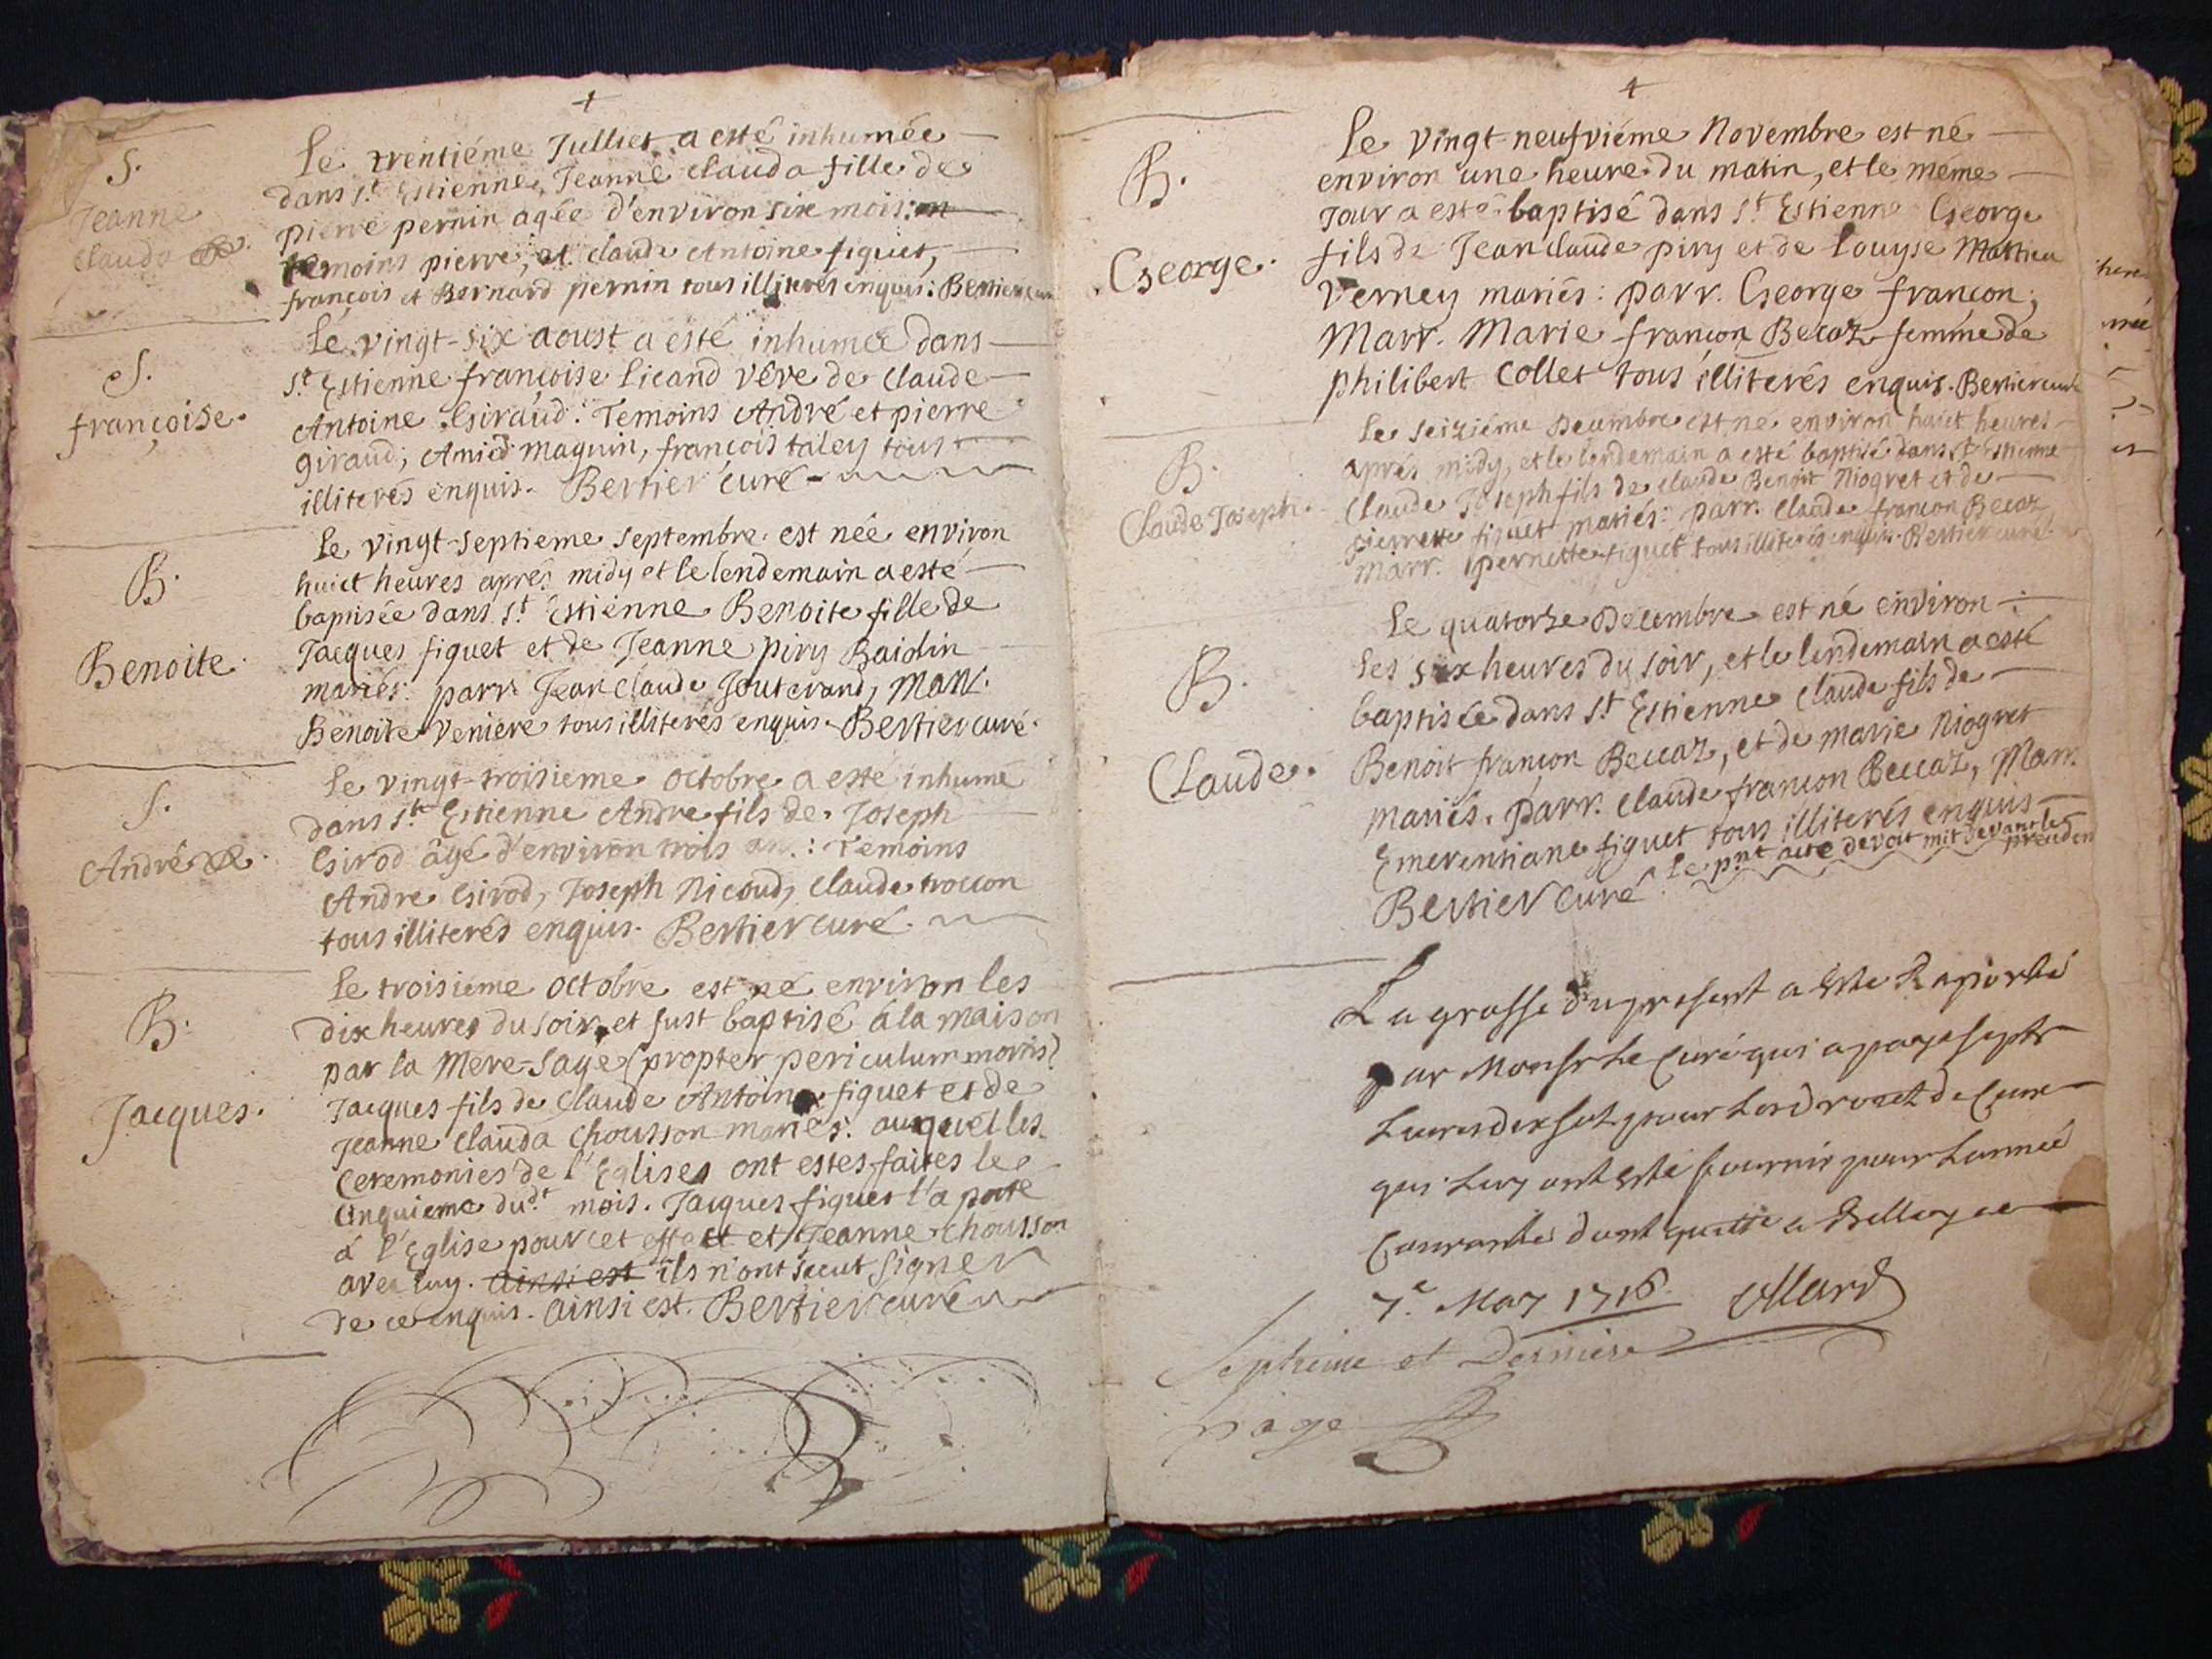 S.
Jeanne
Clauda
Le trentiéme Julliet a esté inhumée
dans s.t Estienne, Jeanne clauda fille de
pierre pernin agée d'environ six mois:
temoins pierre, et claude Antoine figuet,
françois et Bernard pernin tous illiterés enquis: Bertier curé
S.
françoise.
Le vingt-six aoust a esté inhumée dans
s.t Estienne françoise Licand vêve de Claude
Antoine Giraud: Temoins André et pierre
giraud, Amied maguin, françois taley tous
illiterés enquis. Bertier curé
B.
Benoite.
Le vingt-septieme septembre est née environ
huict heures aprés midy et le lendemain a esté
baptisée dans s.t Estienne Benoite fille de
Jacques figuet et de Jeanne piry Baidin
mariés: parr. Jean Claude Jouterand, Marr.
Benoite Veniere tous illiterés enquis. Bertier curé.
S.
André
Le vingt-troisieme octobre a esté inhumé
dans s.t Estienne Andre fils de Joseph
Girod âgé d'environ trois an.: Temoins
Andre Girod, Joseph Nicoud, Claude troccon
tous illiterés enquis. Bertier curé.
B.
Jacques.
Le troisiéme octobre est né environ les
dix heures du soir, et fust baptisé á la maison
par la Mere-Sage (propter periculum mortis)
Jacques fils de Claude Antoine figuet et de
Jeanne Clauda Chousson mariés: auquel les
Ceremonies de l'Eglises ont estes faites le
cinquieme du.t mois. Jacques figuet l'a porte
á l'Eglise pour cet effect et Jeanne Chousson
avec luy. ainsi est ils n'ont sceut signer
de ce enquis. ainsi est. Bertier curé
B.
George.
Le vingt-neufviéme Novembre est né
environ une heure du matin, et le méme
Jour a esté baptisé dans s.t Estienne George
fils de Jean claude piry et de Louyse Mathieu
Verney mariés: parr. George françon;
Marr. Marie françon Becaz femme de
philibert Collet tous illiterés enquis. Bertier curé
B.
Claude Joseph.
Le seiziéme Decembre est né environ huict heures
aprés midy, et le lendemain a esté baptisé dans s.t Estienne
Claude Joseph fils de claude Benoit Niogret et de
pierrette figuet mariés: parr. Claude françon Becaz
Marr. pernette figuet tous illiterés enquis. Bertier curé.
B.
Claude.
Le quatorze Decembre est né environ
les six heures du soir, et le lendemain a esté
baptisée dans s.t Estienne Claude fils de
Benoit françon Beccaz, et de marie Niogret
mariés. parr. Claude françon Beccaz, Marr.
Emerentiane figuet tous illiterés enquis
Bertier curé. Le p.nt acte devoit mit devant le
preceden
La grosse du present a Esté Raporté
par Monsr Le Curé qui a payé septs
Livres dix sol pour Les droictz de
qui Luy ont Esté fournir pour Lannée
Courante dont quitte a Belley ce
7.e May 1716. Allard
Septieme et Derniere
page